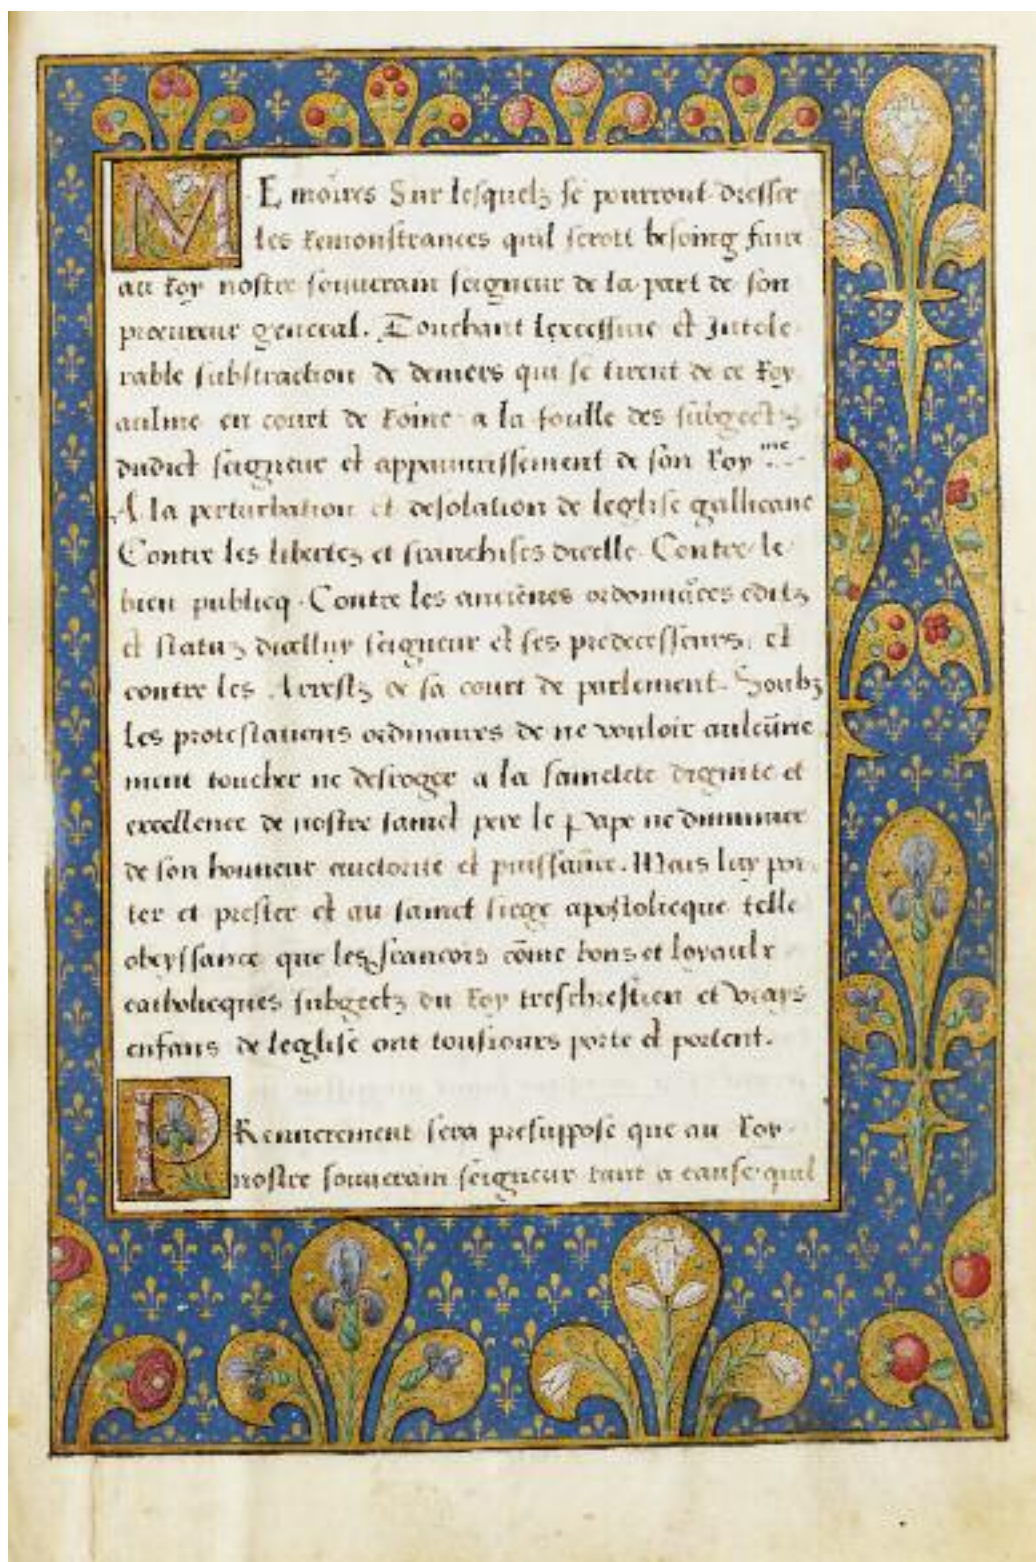 MEmoires Sur lesquelz se pourront dresser
les Remonstrances quil seroit besoing faire
au Roy nostre souuerain seigneur de la part de son
procureur general. Touchant lexcessiue et Intole
rable substraction de deniers qui se tirent de ce Roy
aulme en court de Rome a la foulle des subgectz
dudict seigneur et appauurissement de son Roy.me
A la perturbation et desolation de leglise gallicane
Contre les libertez et franchises dicelle. Contre le
bien publicq. Contre les anciēnes ordonnāces editz
et statuz dicelluy seigneur et ses predecesseurs, et
contre les Arrestz de sa court de parlement. Soubz
les protestations ordinaires de ne vouloir aulcūne
ment toucher ne desroger a la sainctete dignite et
excellence de nostre sainct pere le Pape ne diminuer
de son honneur auctorite et puissāce. Mais luy por
ter et prester et au sainct siege apostolicque telle
obeyssance que les francois cōme bons et loyaulx
catholicques subgectz du Roy treschrestien et vrays
enfans de leglise ont tousiours porte et portent.
PRemierement sera presuppose que au Roy
nostre souuerain seigneur tant a cause quil